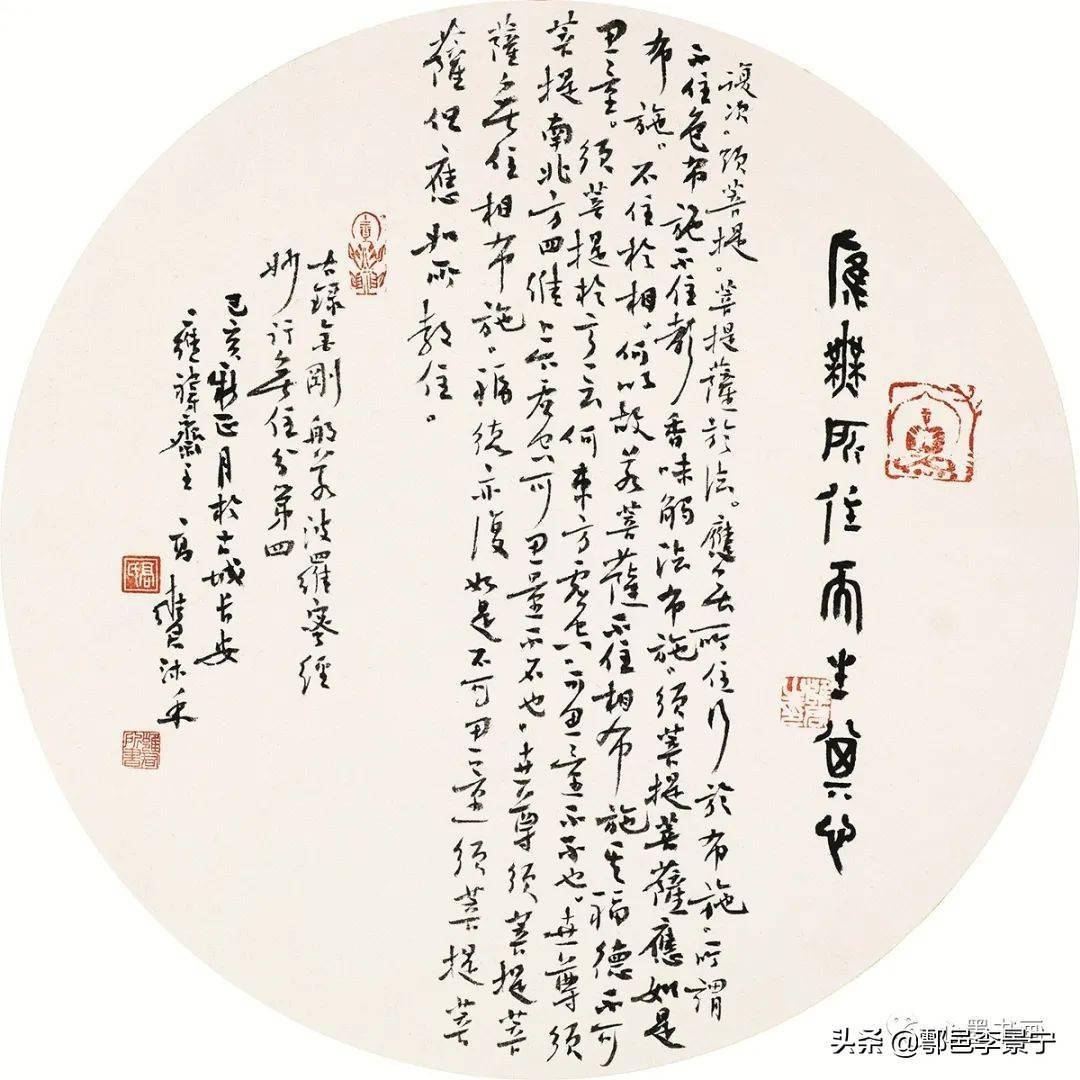 應無所住而生其心
復次。須菩提。菩提薩於法。應無所住行於布施。所謂
不住色布施不住聲香味觸法布施。須菩提菩薩應如是
布施。不住於相。何以故若菩薩不住相布施其福德不可
思量。須菩提於意云何東方虛空可思量不不也。世尊須
菩提南北方四維上下虛空可思量不不也。世尊須菩提菩
薩無住相布施。福德亦復如是不可思量須菩提菩
薩但應如所教住。
右錄金剛般若波羅蜜經
妙行無住分第四
己亥新正月於古城長安
齋主高
头条 @鄠邑李景宁